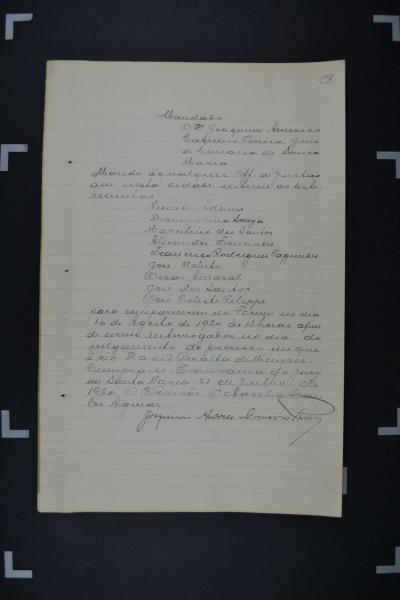 Mandado
O Dr. Joaquim Americo
Carneiro Pereira, Juiz
da Comarca de Santa
Maria
Mando a qualquer Off. de Justiça
que nesta cidade intime as teste-
munhas
Vicente Adams
Diamantino Souza
Marcelino dos Santos
Alexandre
Francisco Rodrigues Fagundes
José
Oscar Amaral
José dos Santos
José Celeste Felippe
para comparecerem no Forum no dia
10 de Agosto de 1920 às 13 horas afim
de serem interrogados no dia do
julgamento do processo em que
é réo David Peralta de Menezes.
Cumpra-se. Escrivania do Jury
em Santa Maria 21 de Julho de
1920. O Escrivão,
los Aguiar.
Joaquim Americo